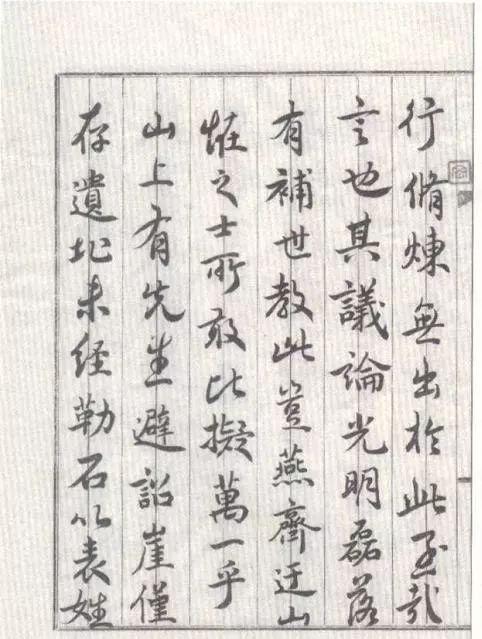 行脩煉無出於此至哉
言也其議論光明磊落
有補世教此豈燕齊迂
怪之士所敢比擬萬一乎
山上有先生避詔崖僅
存遺址未経勒石以表姓